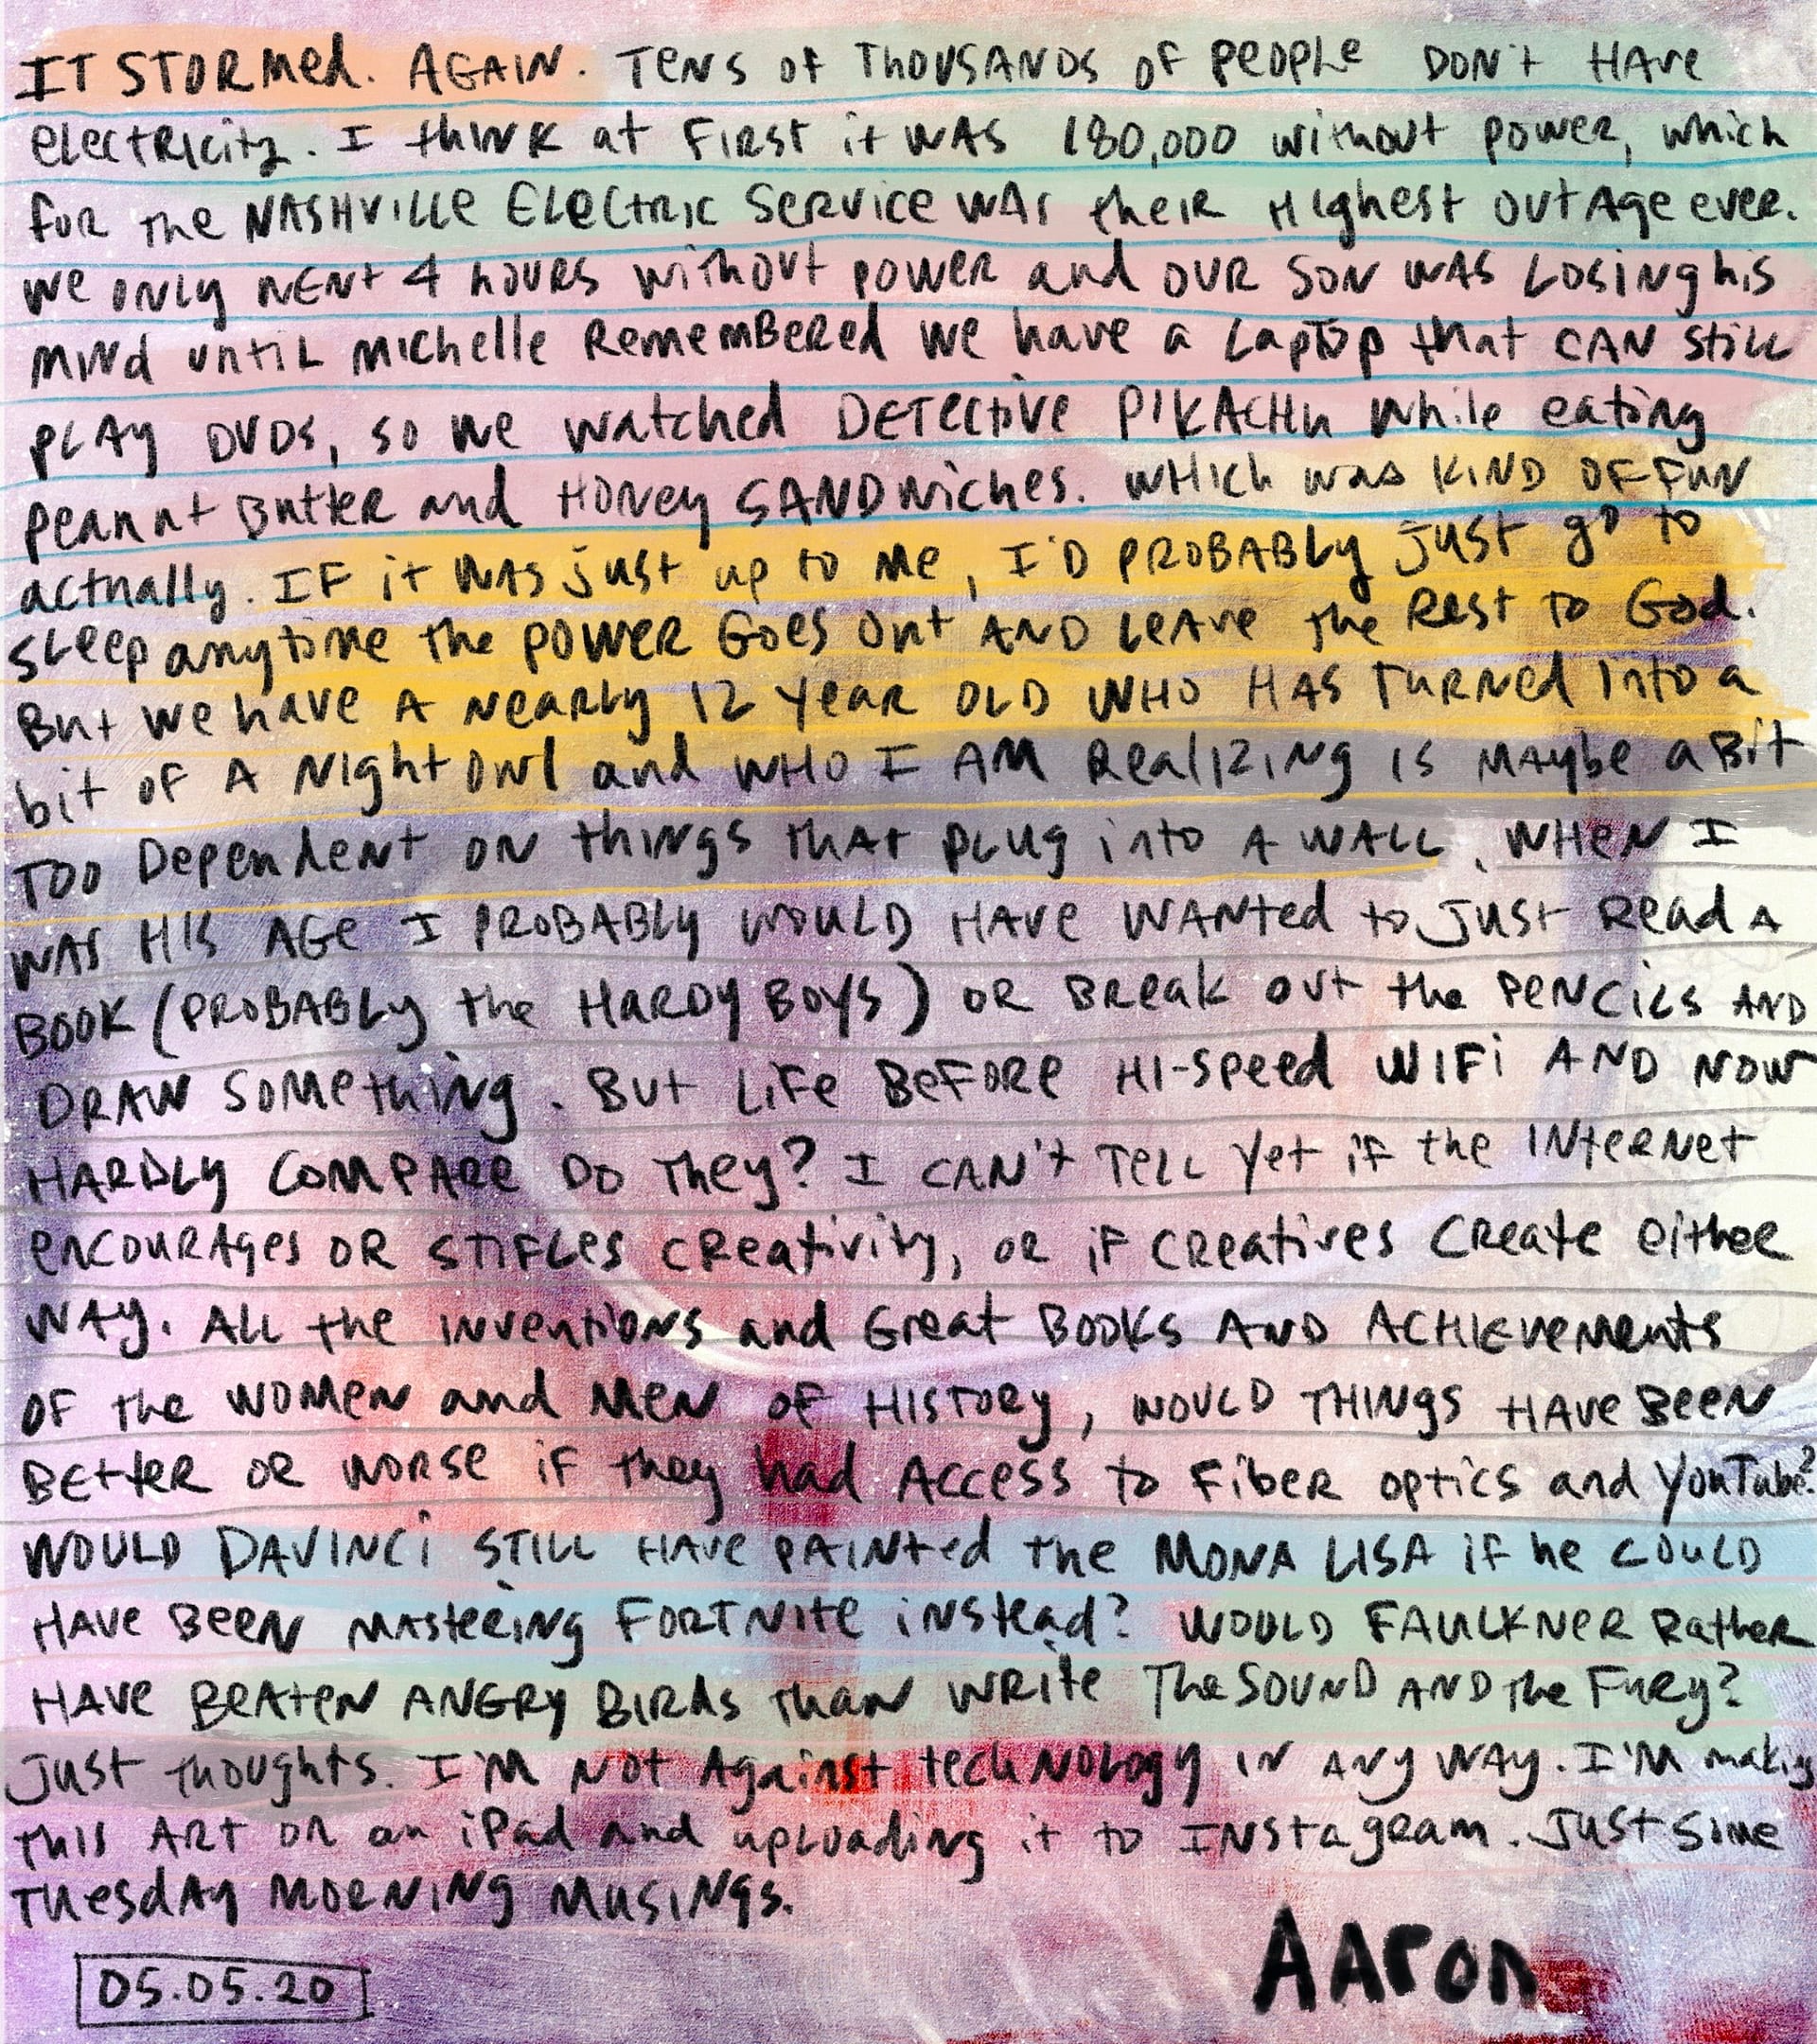 IT STORMED. AGAIN. TENS OF THOUSANDS OF PEOPLE DON'T HAVE
ELECTRICITY. I THINK AT FIRST IT WAS 180,000 WITHOUT POWER, WHICH
FOR THE NASHVILLE ELECTRIC SERVICE WAS THEIR HIGHEST OUTAGE EVER.
WE ONLY WENT 4 HOURS WITHOUT POWER AND OUR SON WAS LOSING HIS
MIND UNTIL MICHELLE REMEMBERED WE HAVE A LAPTOP THAT CAN STILL
PLAY DVDS, SO WE WATCHED DETECTIVE PIKACHU WHILE EATING
PEANUT BUTTER AND HONEY SANDWICHES. WHICH WAS KIND OF FUN
ACTUALLY. IF IT WAS JUST UP TO ME, I'D PROBABLY JUST GO TO
SLEEP ANYTIME THE POWER GOES OUT AND LEAVE THE REST TO GOD.
BUT WE HAVE A NEARLY 12 YEAR OLD WHO HAS TURNED INTO A
BIT OF A NIGHT OWL AND WHO I AM REALIZING IS MAYBE A BIT
TOO DEPENDENT ON THINGS THAT PLUG INTO A WALL. WHEN I
WAS HIS AGE I PROBABLY WOULD HAVE WANTED TO JUST READ A
BOOK (PROBABLY THE HARDY BOYS) OR BREAK OUT THE PENCILS AND
DRAW SOMETHING. BUT LIFE BEFORE HI-SPEED WIFI AND NOW
HARDLY COMPARE DO THEY? I CAN'T TELL YET IF THE INTERNET
ENCOURAGES OR STIFLES CREATIVITY, OR IF CREATIVES CREATE EITHER
WAY. ALL THE INVENTIONS AND GREAT BOOKS AND ACHIEVEMENTS
OF THE WOMEN AND MEN OF HISTORY, WOULD THINGS HAVE BEEN
BETTER OR WORSE IF THEY HAD ACCESS TO FIBER OPTICS AND YOUTUBE?
WOULD DAVINCI STILL HAVE PAINTED THE MONA LISA IF HE COULD
HAVE BEEN MASTERING FORTNITE INSTEAD? WOULD FAULKNER RATHER
HAVE BEATEN ANGRY BIRDS THAN WRITE THE SOUND AND THE FURY?
JUST THOUGHTS. I'M NOT AGAINST TECHNOLOGY IN ANY WAY. I'M MAKING
THIS ART ON AN IPAD AND UPLOADING IT TO INSTAGRAM. JUST SOME
TUESDAY MORNING MUSINGS.
05.05.20
AARON